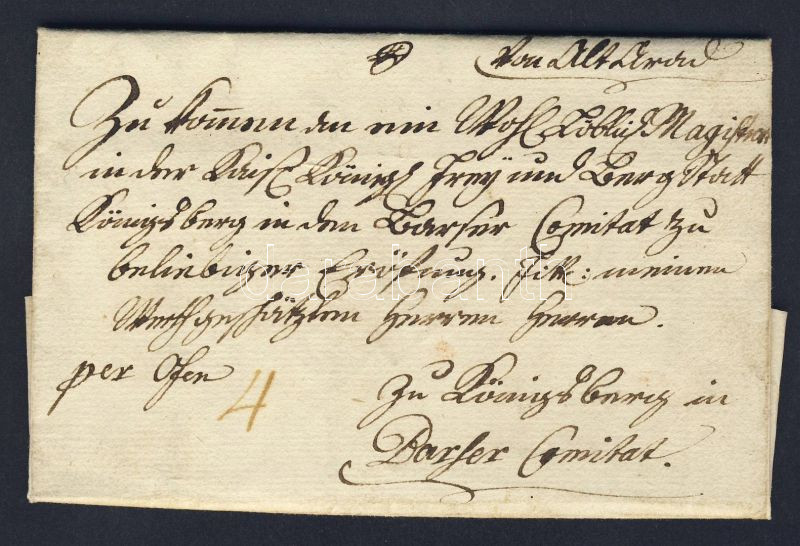 Von Alt Arad
Zu kommen an ein Wohl Löblich Magistrat
in der Kais Königl Frey und Berg Statt
Königsberg in den Barser Comitat zu
beliebiger Eröfnung. Titl: meinen
Werthgeschätzten Herren Herren.
per Ofen 4
Zu Königsberg in
Barser Comitat.
darabanth